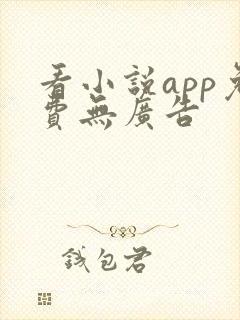 看小說app免
費無廣告
錢包君